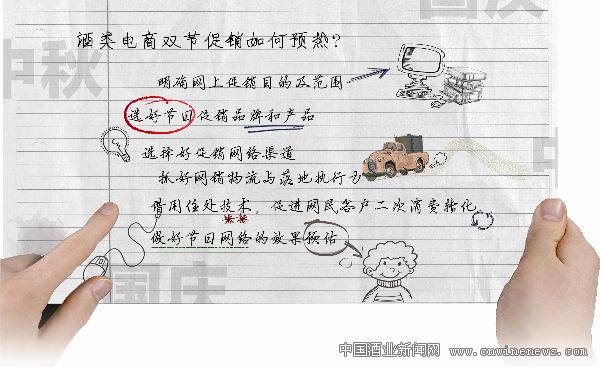 国庆
中秋
酒类电商双节促销如何预热?
明确网上促销目的及范围
选好节日促销品牌和产品
选择好促销网络渠道
抓好网销物流与落地执行力
借用住处技术，促进网民客户二次消费转化
做好节日网络的效果预估
国庆
中国酒业新闻网 www.cnwinenews.com